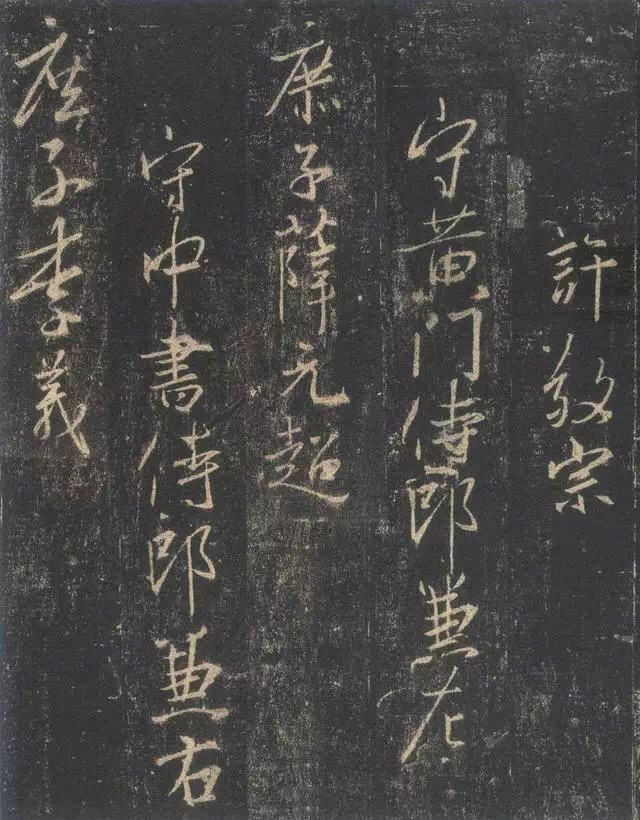 許敬宗
守黃門侍郎兼左
庶子薛元超
守中書侍郎兼右
庶子李義